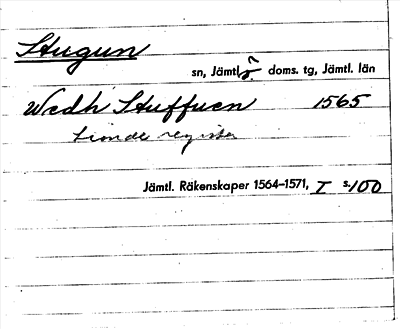 Stugun
sn, Jämtl. doms. tg, Jämtl. län
Wedh Stuffuen 1565
tionde register
Jämtl. Räkenskaper 1564–1571, I s. 100